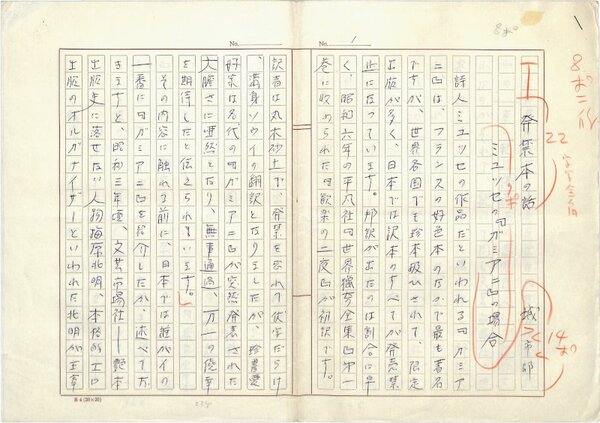 No. 1
8ポ
1
8ポ二段
発禁本の話
22
ミュッセの『ガミアニ』の場合
9ポ
城市郎
14ポ
詩人ミュッセの作品だといわれる『ガミア
ニ』は、フランスの好色本のなかで最も著名
ですが、世界各国でも珍本扱いされて、限定
出版が多く、日本では訳本のすべてが発売禁
止になっています。邦訳が出たのは割合に早
く、昭和六年の平凡社『世界猟奇全集』第一
巻に収められた『歓楽の二夜』が初訳です。
No.
訳者は丸木砂土で、発禁を恐れて伏字だらけ
、満身ソウイの翻訳となりましたが、珍書愛
好家は名代の『ガミアニ』が突然発表された
大胆さに唖然となり、無事通過、万一の僥倖
を期待したと伝えられています。
その内容に触れる前に、日本では誰がイの
一番に『ガミアニ』を紹介したか、述べてお
きますと、昭和三年頃、文芸市場社――艶本
出版史に落せない人物梅原北明、本格的エロ
出版のオルガナイザーといわれた北明が主宰
B4(20×20)